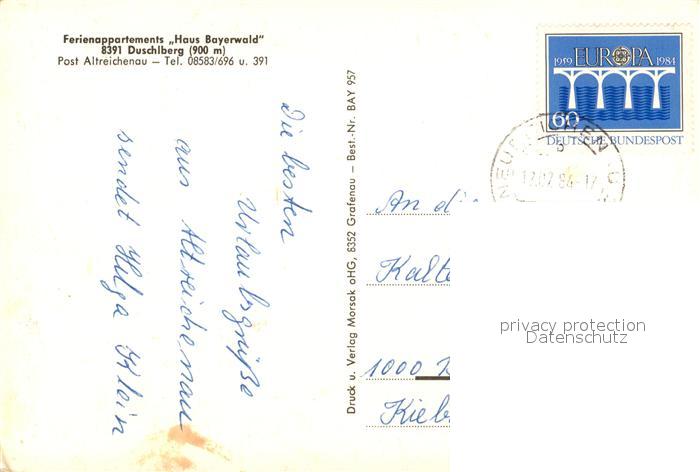 Ferienappartements „Haus Bayerwald"
8391 Duschlberg (900 m)
Post Altreichenau — Tel. 08583/696 u. 391
Die besten
Urlaubsgrüße
aus Altreichenau
sendet Helga Klein
Druck u. Verlag Morsak oHG, 8352 Grafenau — Best.-Nr. BAY 957
1959 EUROPA 1984
60
DEUTSCHE BUNDESPOST
84-17
An di
Kalte
1000
Kieb
privacy protection
Datenschutz